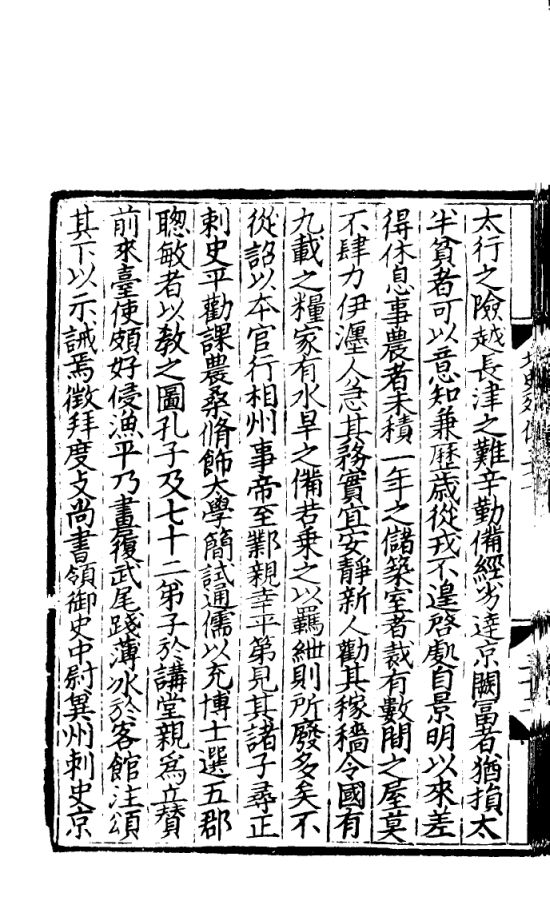 太行之險越長津之難辛勤備經方達京闕冨者猶損太
半貧者可以意知兼歷歲從戎不遑啓處自景明以來差
得休息事農者未積一年之儲築室者裁有數間之屋莫
不肆力伊瀍人急其務實宜安靜新人勸其稼穡令國有
九載之糧家有水旱之備若乗之以羈紲則所廢多矣不
從詔以本官行相州事帝至鄴親幸平第見其諸子尋正
刺史平勸課農桑脩飾太學簡試通儒以充博士選五郡
聰敏者以教之圖孔子及七十二弟子於講堂親爲立賛
前來臺使頗好侵漁平乃畫履武尾踐薄冰於客館注頌
其下以示誡焉徵拜度支尚書領御史中尉兾州刺史京